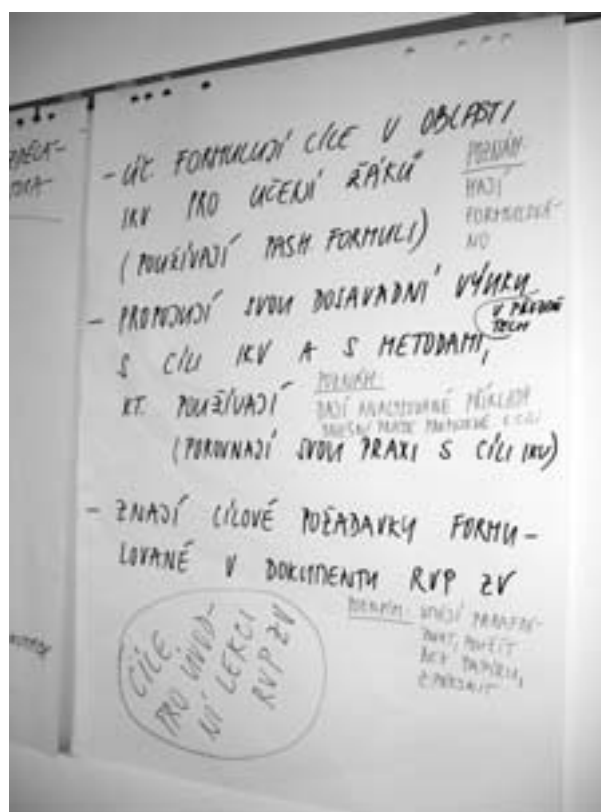 - UČ. FORMULUJÍ CÍLE V OBLASTI
IKV PRO UČENÍ ŽÁKŮ
(POUŽÍVAJÍ MASH FORMULI)
POZNÁM:
MAJÍ
FORMULOVÁ-
NO
- PROPOJUJÍ SVOU DOSAVADNÍ VÝUKU
V PŘEDMĚ
TECH
S CÍLI IKV A S METODAMI,
KT. POUŽÍVAJÍ
POZNÁM:
ANALYZOVANÉ PŘÍKLADY
(POROVNAJÍ SVOU PRAXI S CÍLI IKV)
- ZNAJÍ CÍLOVÉ POŽADAVKY FORMU-
LOVANÉ V DOKUMENTU RVP ZV
POZNÁM: UMĚJÍ PARAFRÁ-
ZOVAT, POUŽÍT
BEZ PAPÍRU,
CÍLE
PRO ÚVOD-
NÍ LEKCI
RVP ZV